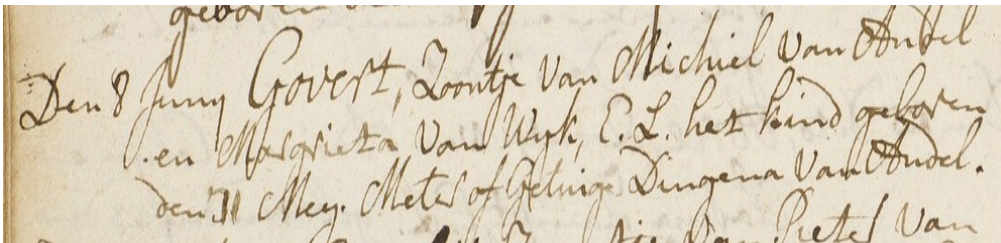 geboren
Den 8 Juny Govert, Zoontje Van Michiel Van Andel
en Margrieta Van Wyk, E. L. het kind geboren
den 31 Mey. Meter of Getuige Dingena Van Andel.
Van Pieter Van